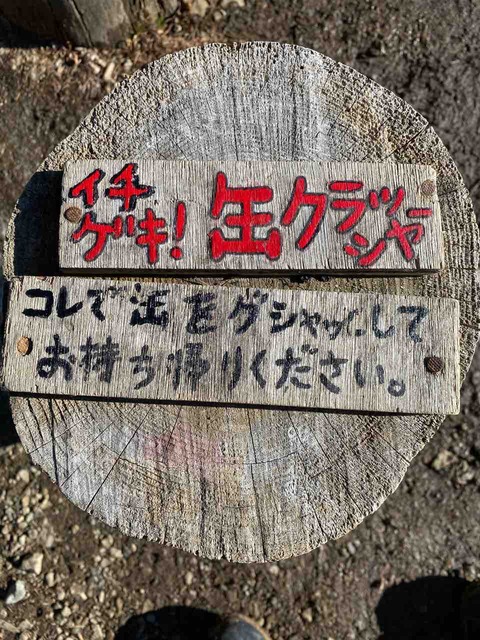 イチゲキ!缶クラッシャー
コレで缶をグシャッ.して
お持ち帰りください。